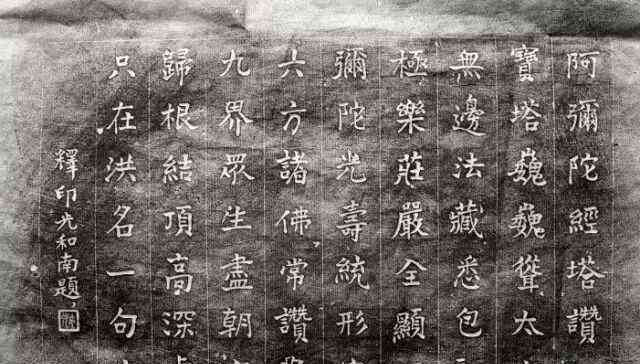 阿彌陀經塔讚
寶塔巍巍聳太
無邊法藏悉包
極樂莊嚴全顯
彌陀光壽統形
六方諸佛常讚
九界眾生盡朝
歸根結頂高深
只在洪名一句
釋印光和南題